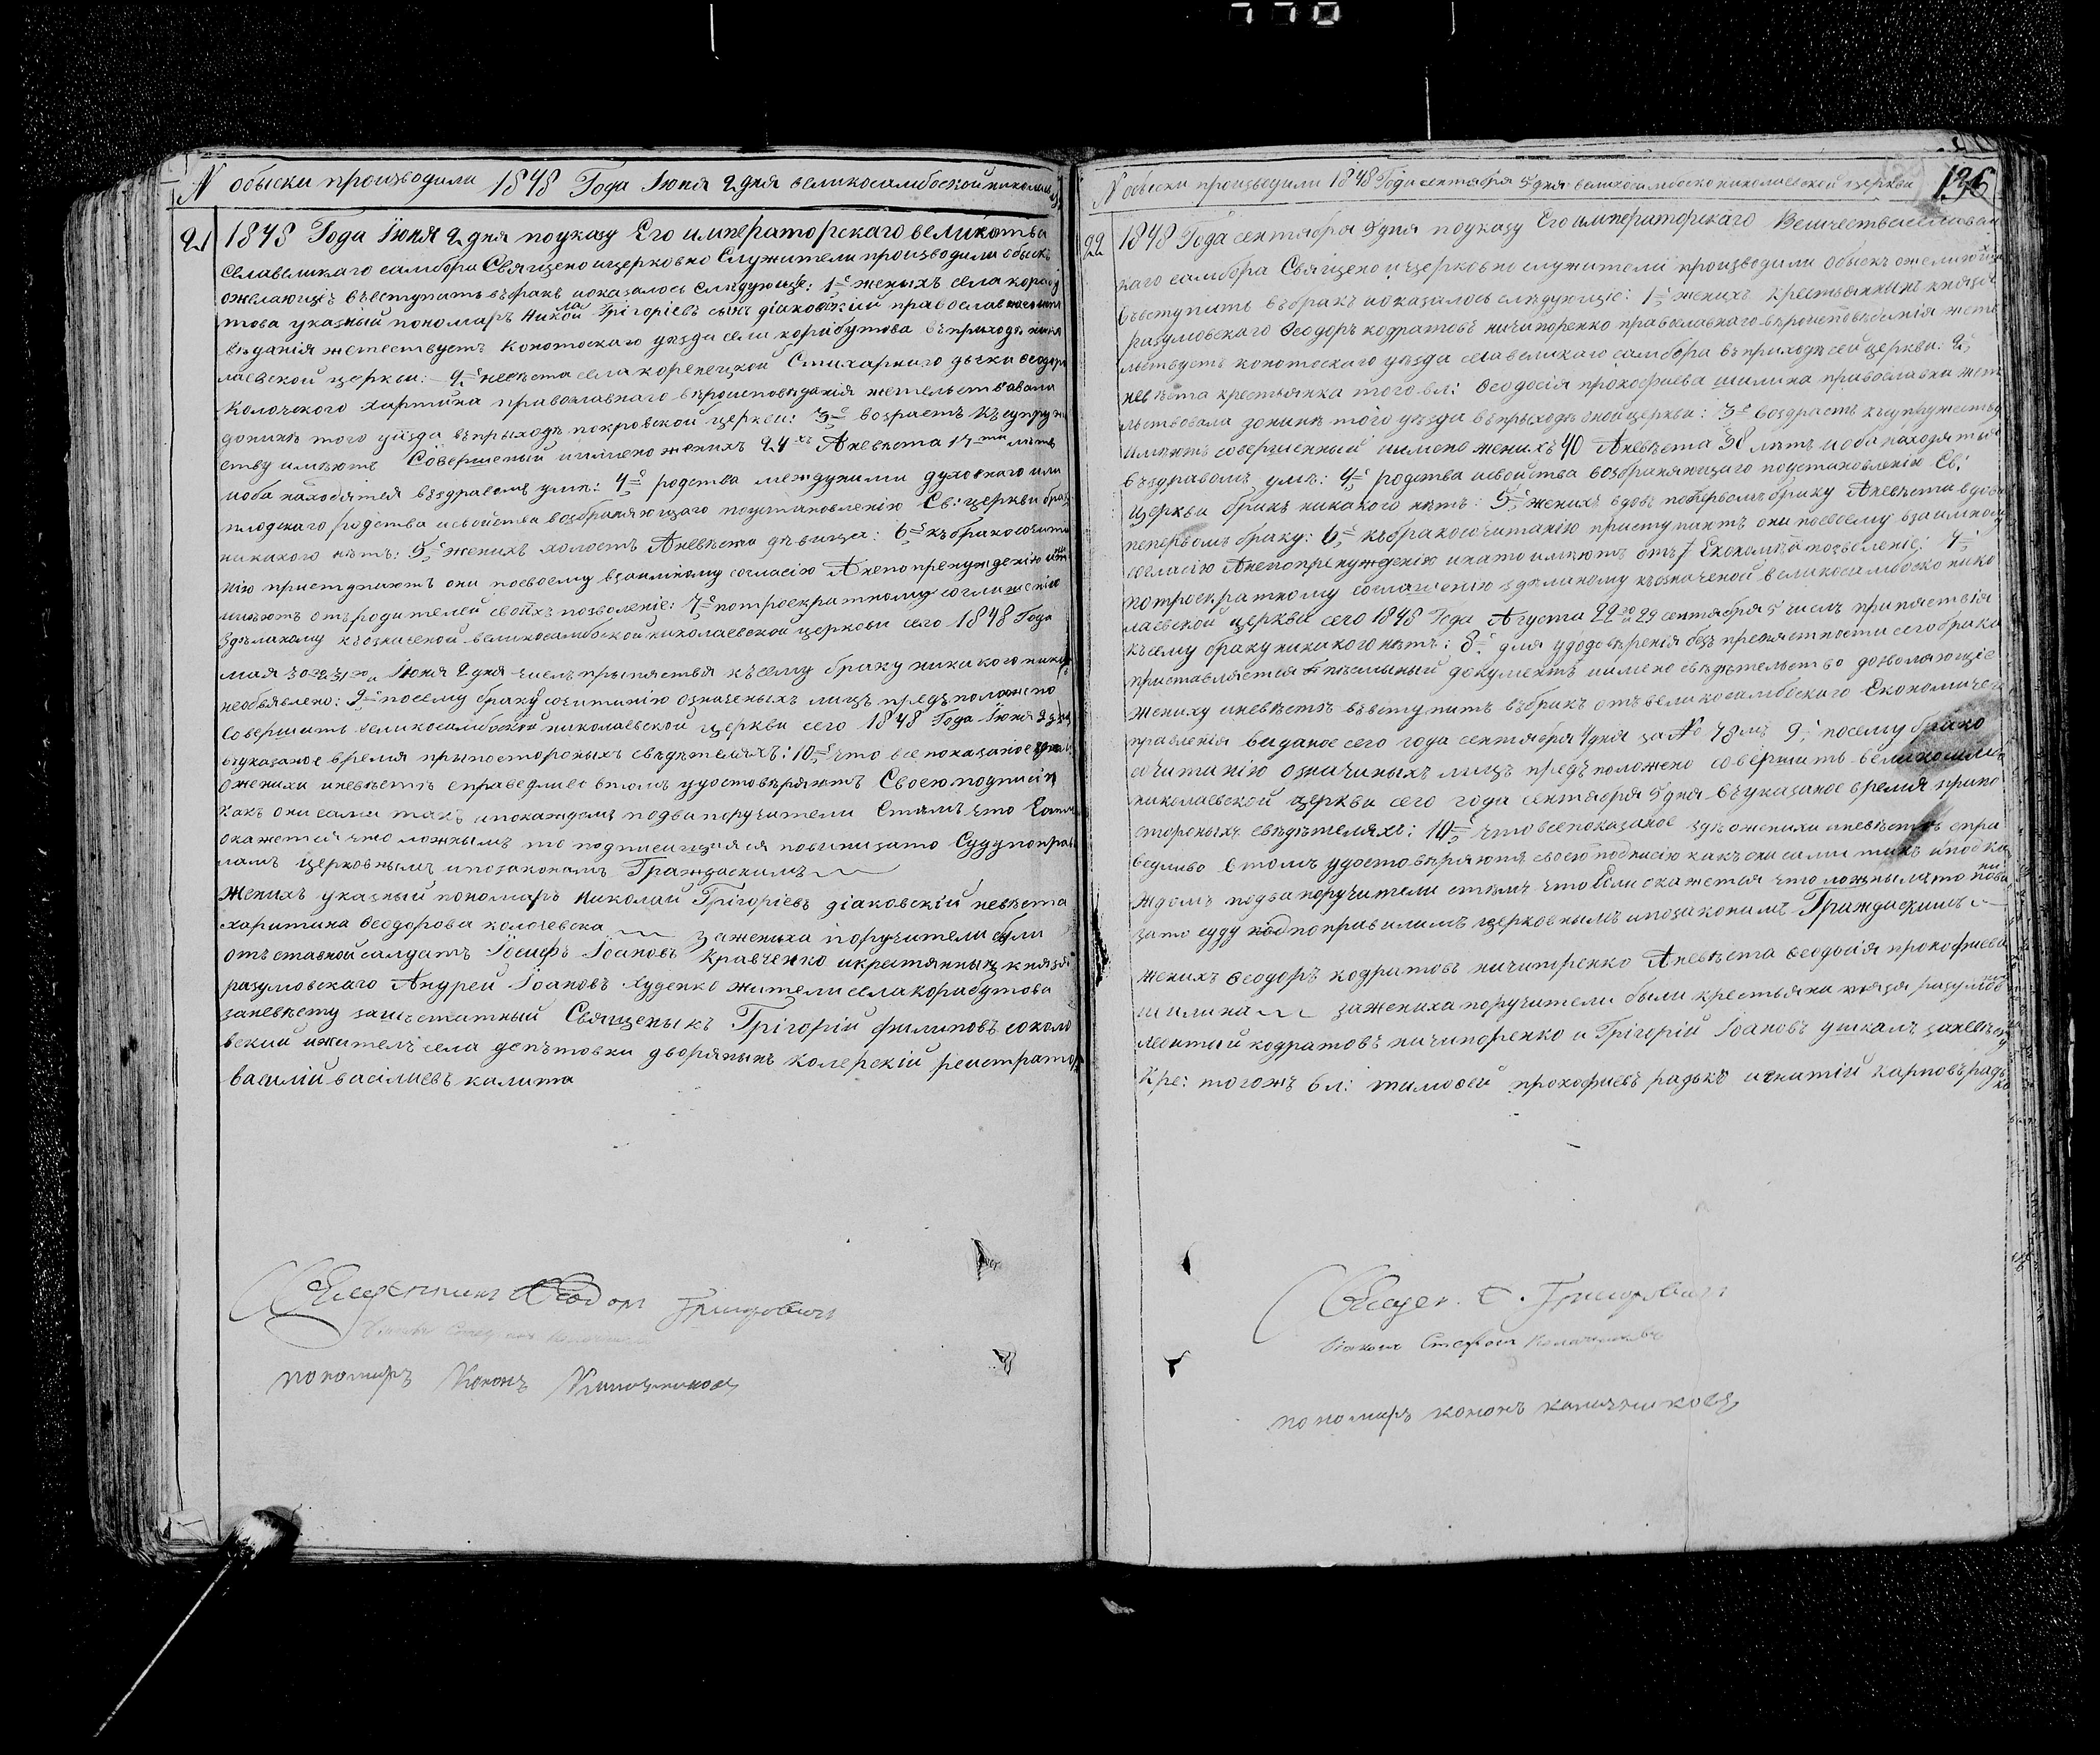 770
N обыски производили 1848 Года Іюня 2 дня великосамбоской николаев
21 1848 Года Іюня 2 дня поуказу Его императорскаго великства
Селавеликаго самбора Священо ицерковно Служители производили обыскъ
ожелающіх въвступить въбракъ ипоказалось следующіе: 1е женыхъ села корибу
това указный пономаръ Николай Грігоріевъ сынъ діаковскій православнаго
веданія жетествуетъ Конотоскаго уезда села корибутова въприходе нико
лаевской церкви: 2е невеста села коренецкой Стихарнаго дьчка Феодора
Колочского харитина православнаго вероисповеданія жетельствовала
доныне того уезда въприходе покровской церкви: 3е возрастъ къ супруже
ству имеютъ Совершеный иимено женихъ 24хъ Аневеста 17ти летъ
иоба находятся въздравомъ уме: 4е родства междуними духовнаго или
плодскаго родства исвойства возбраняющаго поустановленію Св: церкви бракъ
никакого нетъ: 5е женихъ холостъ Аневеста девица: 6е къбракосочита
нію приступаютъ они посвоему взаимному согласію Анепопренужденію
имеютъ отъродителей своихъ позволеніе: 7е потроекратному соглашенію
зделаному въозначеной великосамбоской николаевской церкови сего 1848 Года
мая 30го 31го и Іюня 2 дня числъ препяствія къ сему браку никакого никемъ
необъявлено: 9е посему браку сочитанію означеныхъ лицъ предположено
Совершить великосамбоской николаевской церкви сего 1848 Года Іюня 2 дня
въуказаное время припостороныхъ сведетеляхъ: 10е что все показаное
ожениха иневесте справедливо втомъ удостоверяютъ Своею подписію
какъ они сами такъ ипокаждомъ подва поручители Стемъ что Если
окажется что ложнымъ то подписавшіяся повинызато Суду поправи
ламъ церковнымъ ипозаконамъ Гражданскимъ
Женихъ указный пономаръ Николай Грігоріевъ діаковскій невеста
харитина Феодорова колочевска заженыха поручители были
отъставной салдатъ Іосифъ Іоановъ Кравченко икрестянинъ князя
разумовскаго Андрей Іоановъ Худенко жители села корибутова
заневесту зашетатный Священыкъ Грігорій филиповъ соколо
вский ижитель села депътовки дворянынъ колерскій реистраторъ
василій васіліевъ калита
Священникъ Феодоръ Григоровичъ
пономаръ Кононъ
N обыски производили 1848 Года сентября 5 дня великосамбоско николаевской церкви 136
22 1848 Года сентября 5 дня поуказу Его императорскаго Величества
каго самбора Священо ицерковно служители производили обыскъ ожелающіх
въвступить въбракъ ипоказалось следующіе: 1е женихъ крестьянинъ князя
разумовскаго Феодоръ кодратовъ ничипоренко православнаго вероисповеданія жете
льствуетъ конотоскаго уезда селавеликаго самбора въприходе сей церкви: 2е
невеста крестьянка того вл: Феодосія прокофиева шилина православна жете
льствовала доныне того уезда въприходе оной церкви: 3е воздрастъ къ супружеству
имеютъ совершенный иимено женихъ 40 Аневеста 38 летъ иоба находятся
въздравомъ уме: 4е родства исвойства возбраняющаго поустановленію Св:
церкви бракъ никакого нетъ: 5е женихъ вдовъ поперьвомъ браку Аневеста вдова
поперьвомъ браку: 6е къбракосочитанію приступаютъ они посвоему взаимному
согласію Анепопренужденію инато имеютъ отъ Екноміи позволеніе: 7е
потроекратному соглашенію зделаному въозначеной великосамбоско нико
лаевской церкви сего 1848 Года Августа 22го и 29 сентября 5 числъ припяствія
къ сему браку никакого нетъ: 8е для удодоверенія безъ препяствности сего брака
приставляется письмяный документъ иимено сведетельство дозволяющіе
жениху иневесте въвступить въбракъ отъ великосамбоскаго Економическ
правленія выданое сего года сентября 4 дня за No 78мъ 9е посему брако
сочитанію означиныхъ лицъ предположено совершить великосамб
николаевской церкви сего года сентября 5 дня въуказаное время припо
стороныхъ сведетеляхъ: 10е что все показаное зде ожениха иневесте спра
ведливо втомъ удостоверяютъ своею подписію какъ они сами такъ ипо ка
ждомъ подва поручители стемъ что Если окажется что ложнымъ то повини
зато суду поправиламъ церковнымъ ипозаконамъ Гражданскимъ
женихъ Феодоръ кодратовъ ничипоренко Аневеста Феодосія прокофиева
шилина заженыха поручители были крестьяни князя разумов
леонтий кодратовъ ничипоренко и Грігорій Іоановъ ушкалъ заневесту
Кре: тогожъ вл: тимофей прокофиевъ радько игнатій карповъ радько
Священ. Ѳ. Григоровичъ
Діаконъ Стефанъ
пономаръ кононъ калачниковъ